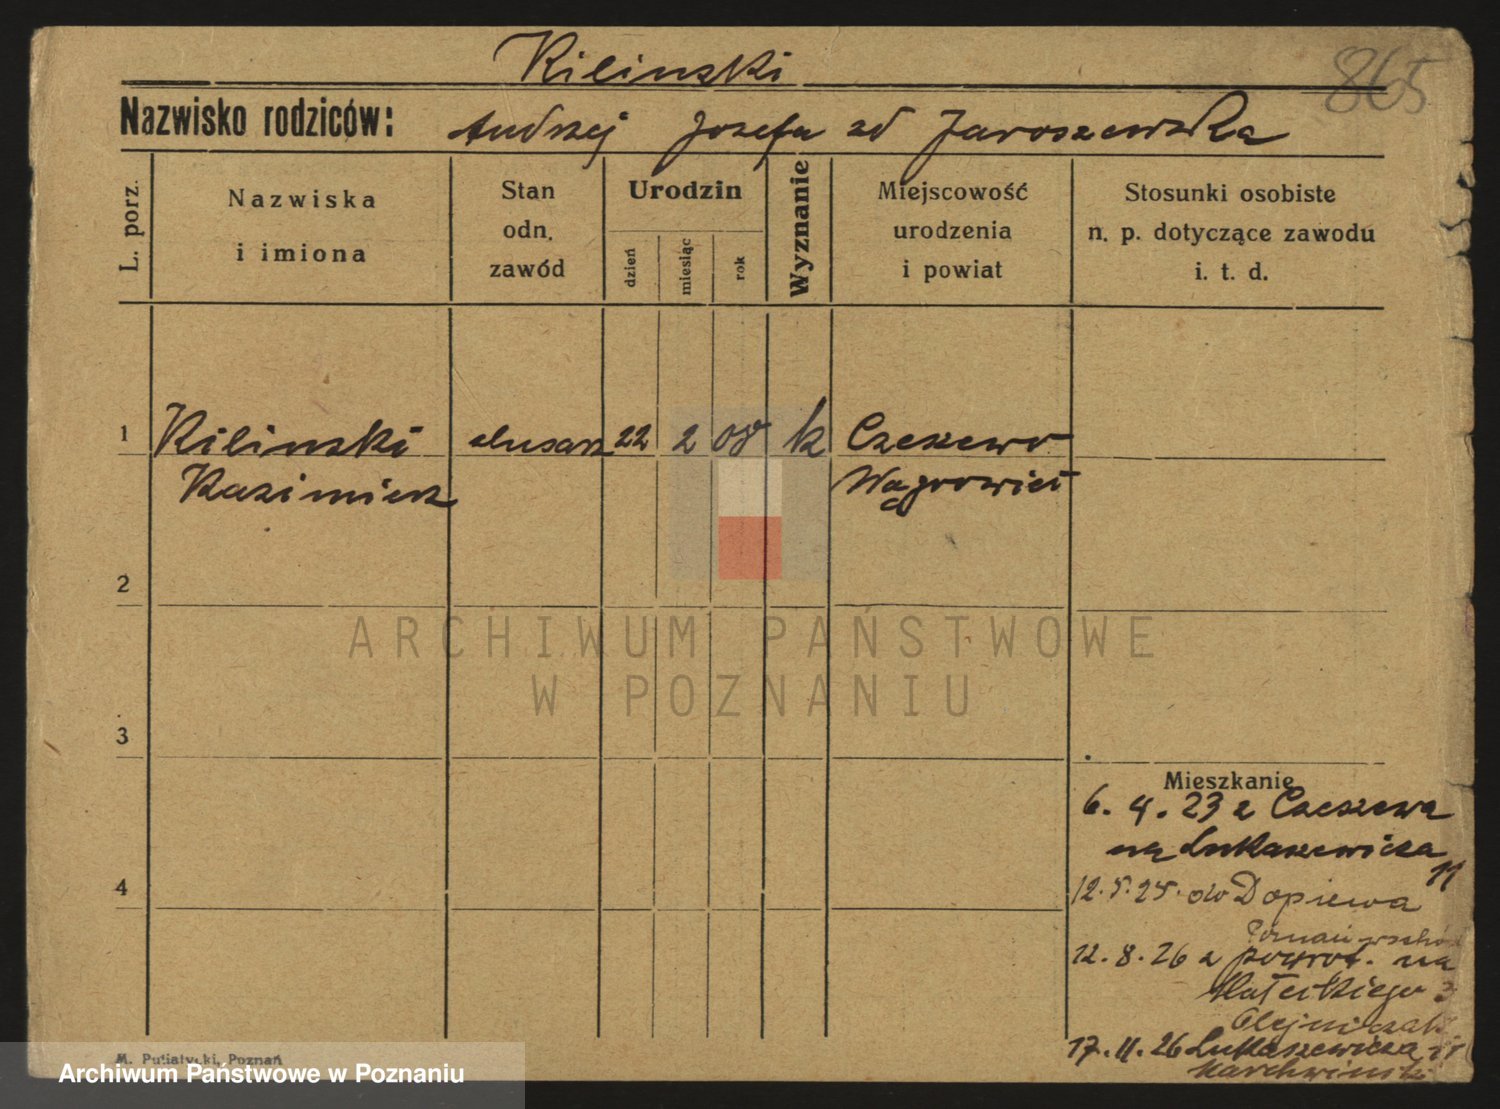 Kilinski
865
Nazwisko rodziców: Andrzej Jozefa zd Jaroszewska
L. porz.
Nazwiska
i imiona
Stan
odn.
zawód
Urodzin
dzień
miesiąc
rok
Wyznanie
Miejscowość
urodzenia
i powiat
Stosunki osobiste
n. p. dotyczące zawodu
i. t. d.
1 Kilinski slusarz 22 2 08 k Czeszewo
Kazimierz Wągrowiec
2
ARCHIWUM PAŃSTWOWE
W POZNANIU
3
Mieszkanie
6. 4. 23 z Czeszewa
na Lukaszewicza
11
4
12. 5. 25. do Dopiewa
Poznań wschód
12. 8. 26 z powrot. na
Małeckiego 3
Olejniczak
17. 11. 26 Lukaszewicza
M. Putiatycki, Poznań
Archiwum Państwowe w Poznaniu